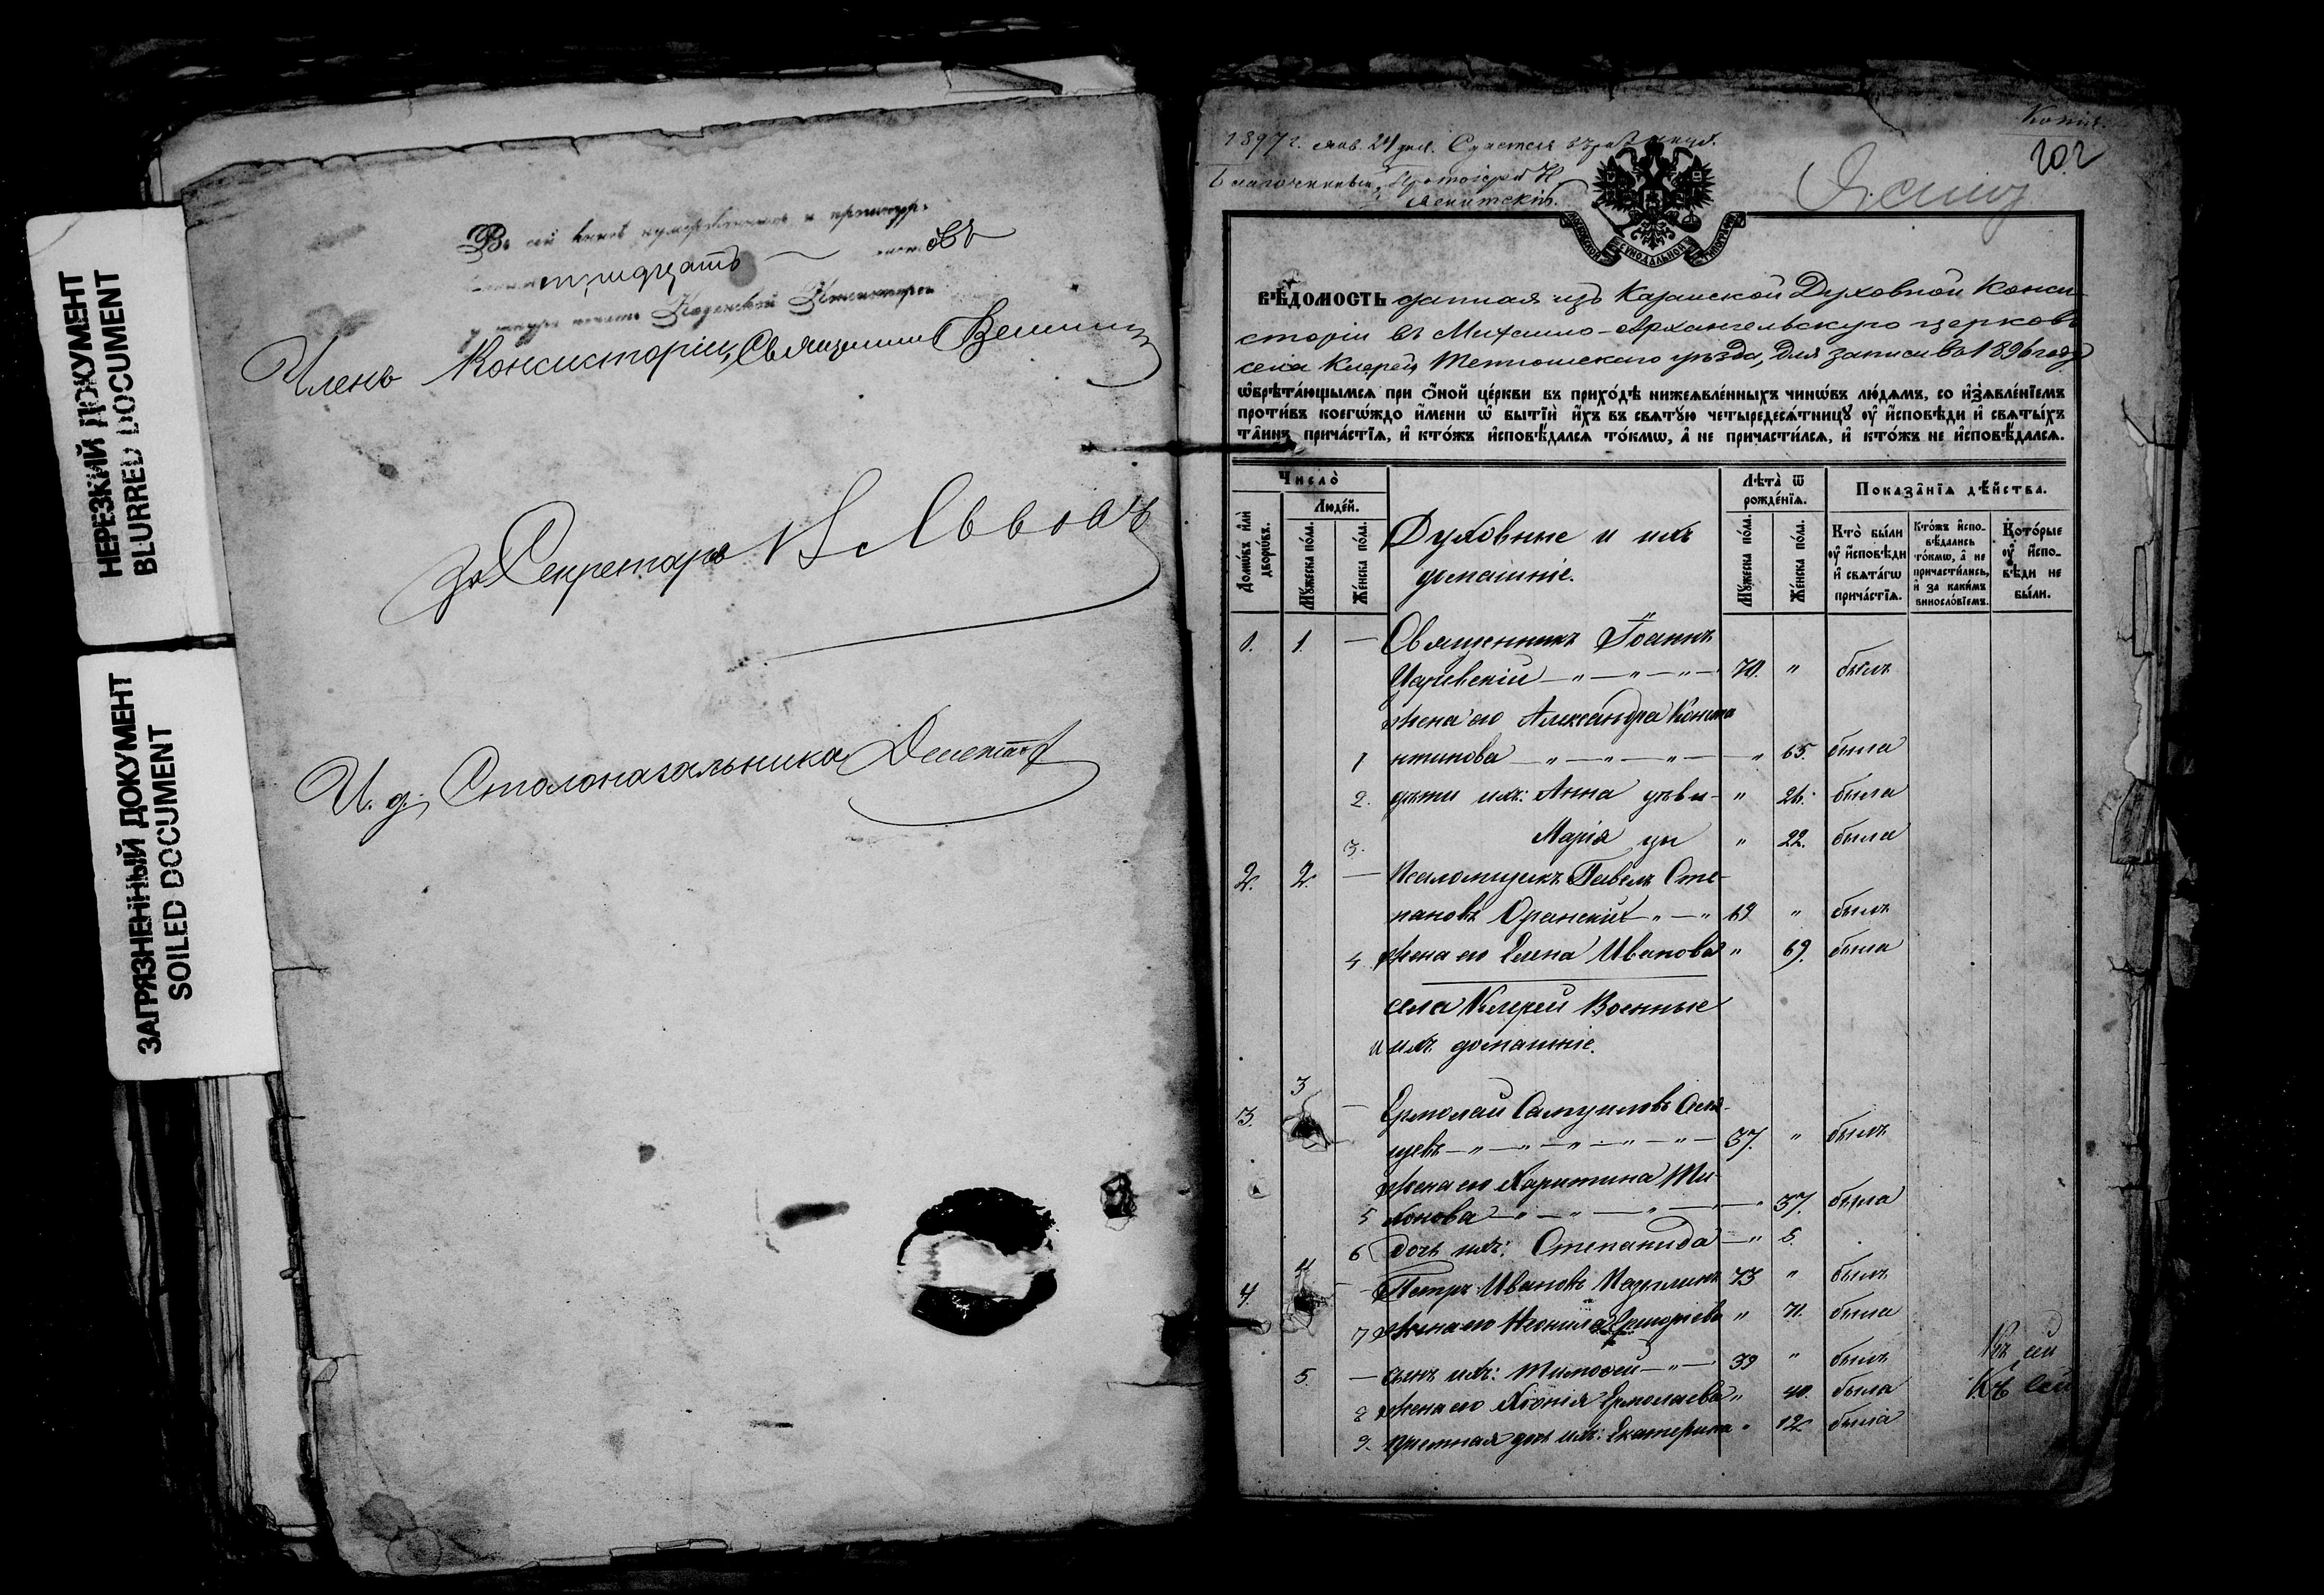 НЕРЕЗКИЙ ДОКУМЕНТ
BLURRED DOCUMENT
ЗАГРЯЗНЕННЫЙ ДОКУМЕНТ
SOILED DOCUMENT
Въ сей книгѣ
тридцать листовъ
Казанской Консисторіи
Членъ Консисторіи, Священникъ
За Секретаря Львовъ
И. д. Столоначальника
Копія.
1897 г. янв. 24 дня.
Благочинный, Протоіерей Н.
202
МОСКОВСКОЙ СУНОДАЛЬНОЙ ТИПОГРАФІИ
ВѢДОМОСТЬ данная изъ Казанской Духовной Конси-
сторіи въ Михаило-Архангельскую церковь
села Клерей Тетюшскаго уѣзда, для записи въ 1896 году
ѡ҆брѣта́ющымсѧ при ѻ҆́ной це́ркви въ прихо́дѣ нижеѧвле́нныхъ чинѡ́въ лю́дѧмъ, со и҆з̾ѧвле́нїемъ
проти́въ коегѡ́ждо и҆́мени ѡ҆ бытїѝ и҆́хъ въ свѧту́ю четыредесѧ́тницу ᲂу҆ и҆́сповѣди и҆ свѧты́хъ
та̑инъ прича́стїѧ, и҆ кто́жъ и҆сповѣ́далсѧ то́кмѡ, а҆ не причасти́лсѧ, и҆ кто́жъ не и҆сповѣ́далсѧ.
Число̀
Люде́й.
Домѡ́въ и҆лѝ дворѡ́въ.
Мꙋ́жеска по́ла.
Же́нска по́ла.
Духовные и ихъ
домашніе.
Лѣ́та ѿ рожде́нїѧ.
Мꙋ́жеска по́ла.
Же́нска по́ла.
Показа̑нїѧ дѣ́йства.
Кто̀ бы́ли ᲂу҆ и҆́сповѣди и҆ свѧта́гѡ прича́стїѧ.
Кто́жъ и҆спо-вѣ́дались то́кмѡ, а҆ не причасти́лись, и҆ за каки́мъ виносло́вїемъ.
Кото́рые ᲂу҆ и҆́спо-вѣди не бы́ли.
1. 1. — Священникъ Іоаннъ
— " — " — " — 70. " былъ
жена его Александра Конста
1 нтинова — " — " — " — " 65. была
2. дѣти ихъ: Анна дѣви- " 26. была
3. Марія " 22. была
2. 2. — Псаломщикъ Павелъ Сте-
пановъ — " — " 69 " былъ
4 жена его Елена Иванова " 69. была
села Клерей Военные
и ихъ домашніе.
3. 3 — Ермолай Самуиловъ
— " — " — " — " — " — 37. " былъ
жена его Харитина Ти-
5 хонова — " — " — " — " 37. была
6 дочь ихъ: Степанида — " 5.
4. 4 — Петръ Ивановъ 73 " былъ
7 жена его " 71. была
5. — сынъ ихъ: Тимоѳей — " — 39 " былъ
8 жена его Хіонія Ермолаева " 40. была
9. пріемная дочь ихъ: Екатерина " 12 была
Къ сей
Къ сей